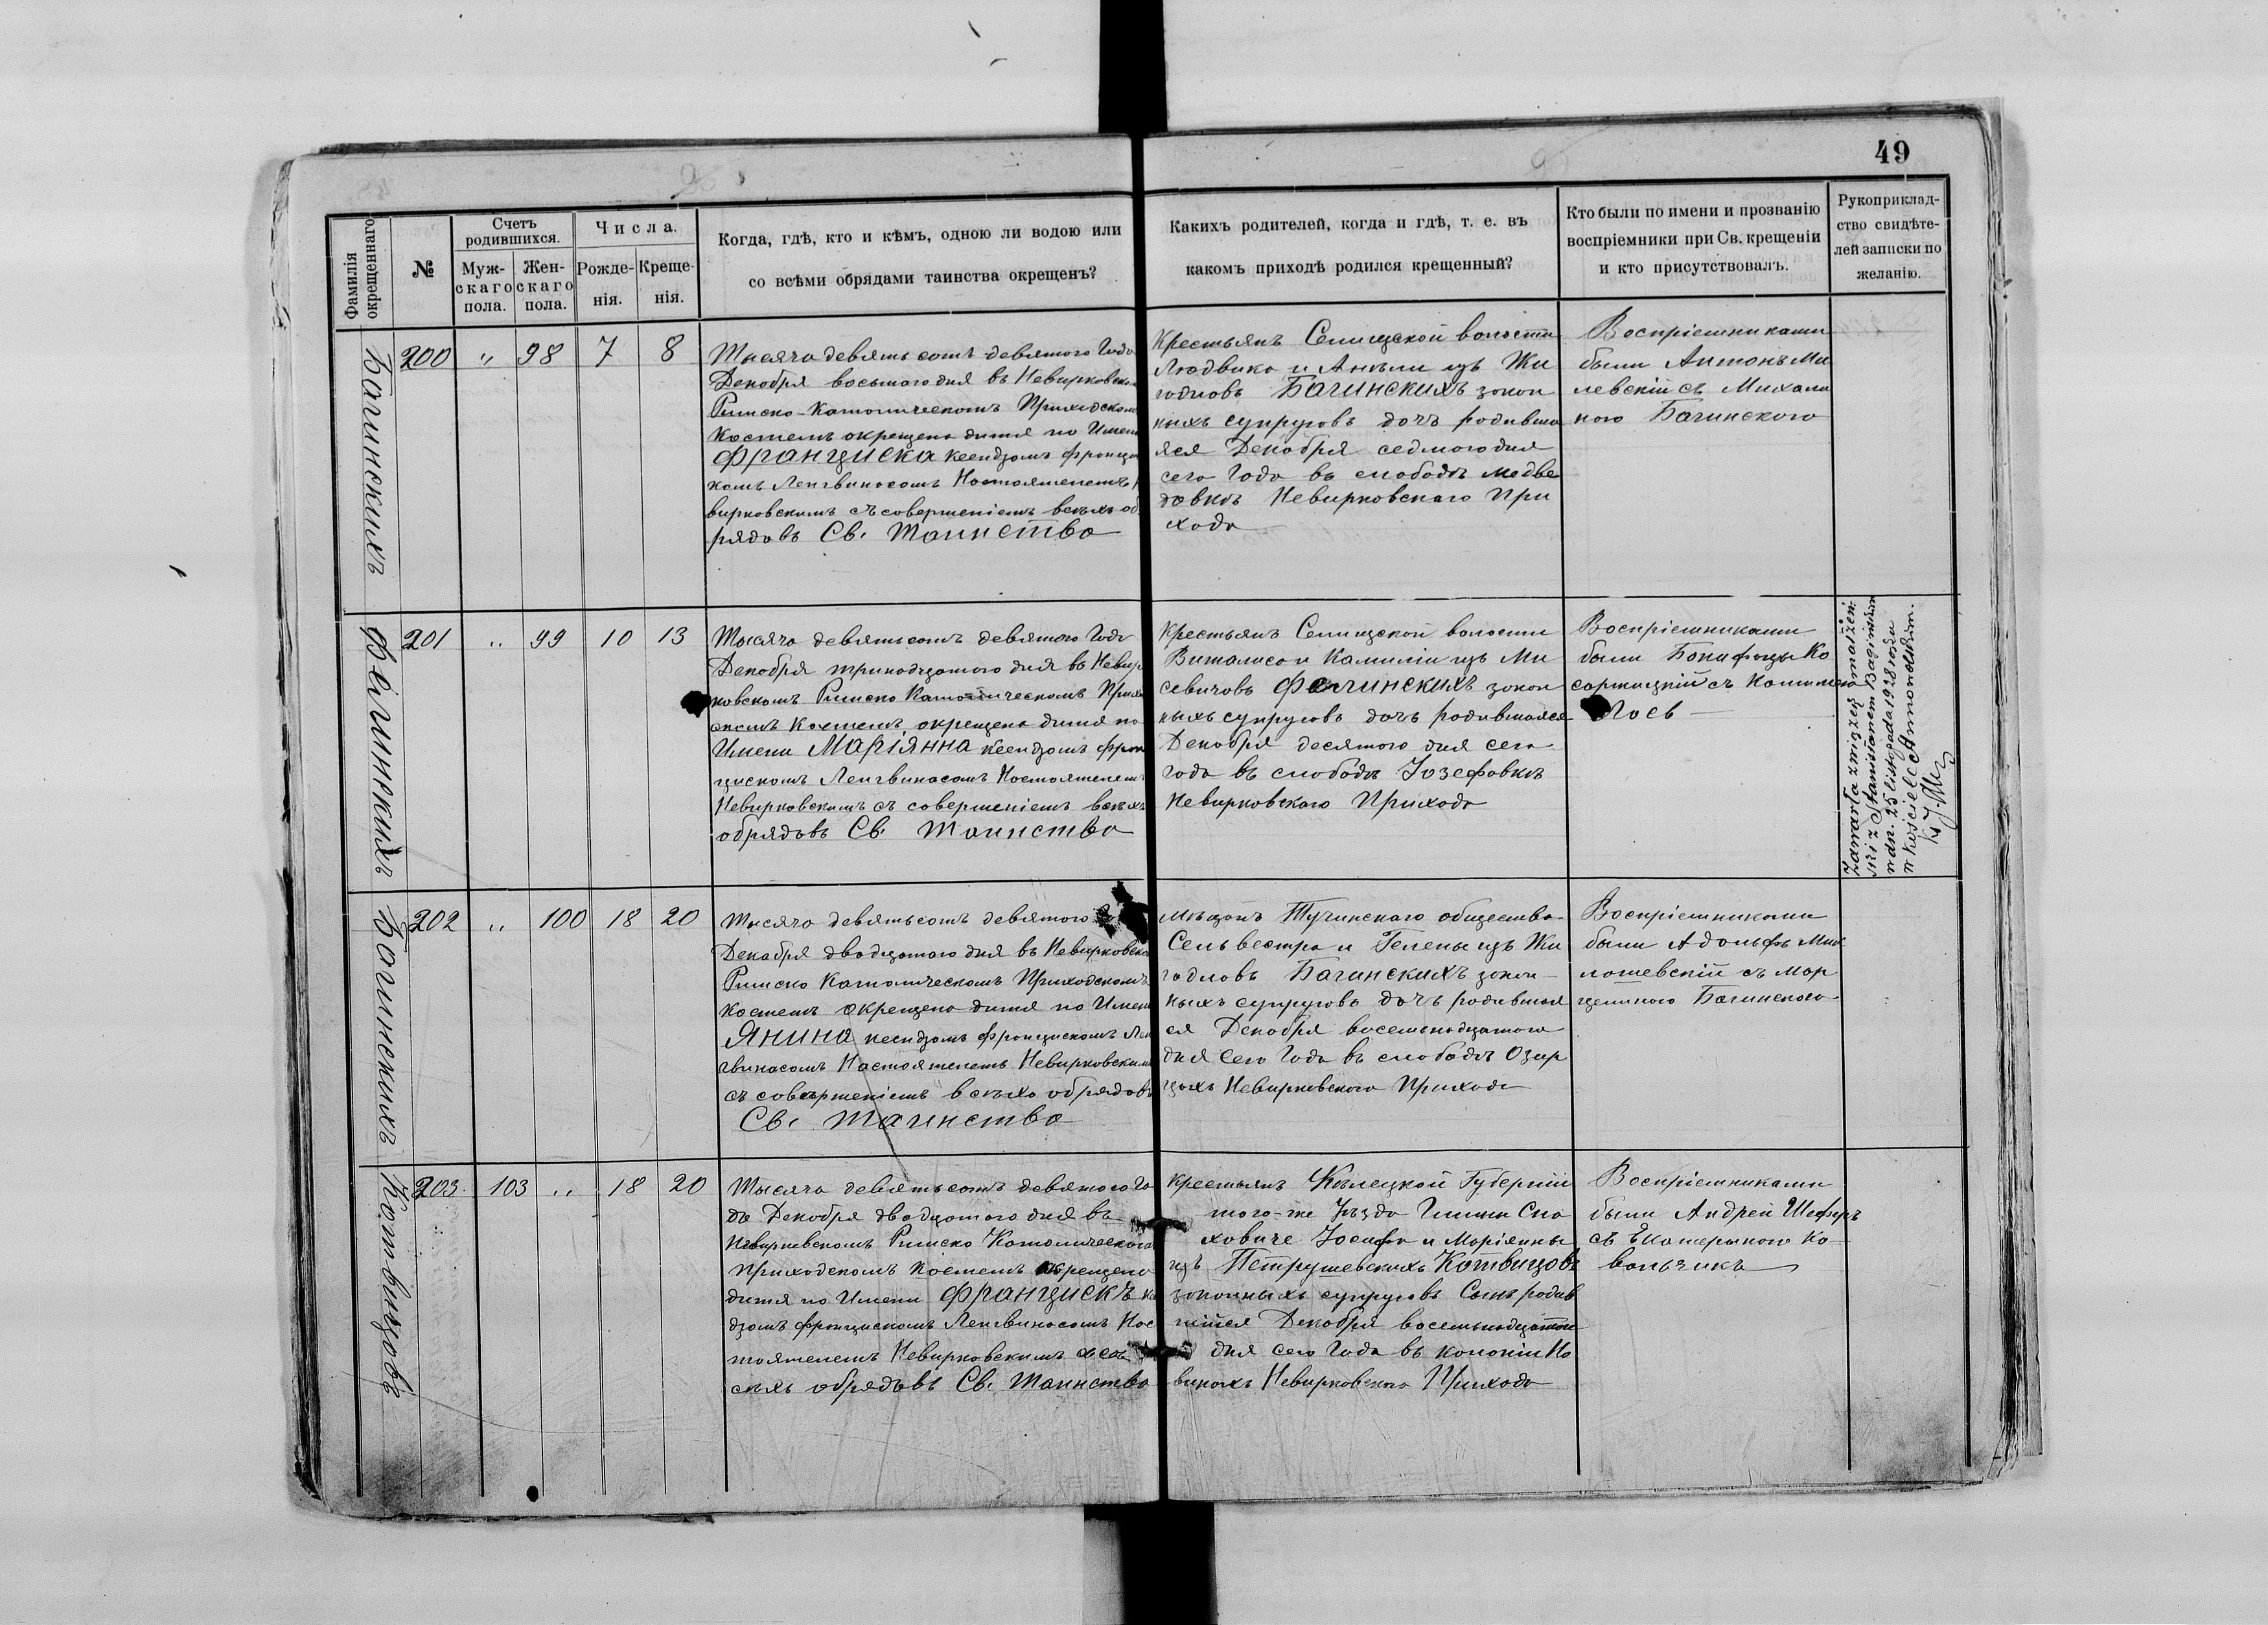 49
Фамилія окрещеннаго
№
Счетъ родившихся.
Муж-скаго пола.
Жен-скаго пола.
Числа.
Рожде-нія.
Креще-нія.
Когда, гдѣ, кто и кѣмъ, одною ли водою или
со всѣми обрядами таинства окрещенъ?
Какихъ родителей, когда и гдѣ, т. е. въ
какомъ приходѣ родился крещенный?
Кто были по имени и прозванію
воспріемники при Св. крещеніи
и кто присутствовалъ.
Рукоприклад-
ство свидѣте-
лей записки по
желанію.
Багинскихъ
200 " 98 7 8
Тысяча девять сотъ девятого Года
Декабря восьмого дня въ Невирковском
Римско-Католическомъ Приходском
Костелѣ окрещена дитя по Имени
Франциска ксендзомъ Францис
комъ Ленгвинасомъ Настоятелемъ Не
вирковскимъ съ совершеніемъ всѣхъ об
рядовъ Св. Таинства
Крестьянъ Селищской волости
Людвика и Анели изъ Жи
годловъ Багинскихъ закон
ныхъ супруговъ дочь родивша
яся Декабря седмого дня
сего Года въ слободѣ Медве
довкѣ Невирковскаго При
хода
Воспріемниками
были Антонъ Ми
левскій съ Михали
ною Багинского
Фелинскихъ
201 " 99 10 13
Тысяча девятьсотъ девятого Года
Декабря тринадцатого дня въ Невир
ковскомъ Римско Католическомъ Прихо
скомъ Костелѣ окрещена дитя по
Имени Маріянна ксендзомъ Фран
цискомъ Ленгвинасомъ Настоятелемъ
Невирковскимъ съ совершеніемъ всѣхъ
обрядовъ Св. Таинства
Крестьянъ Селищской волости
Виталиса и Камиліи изъ Ми
севичовъ Фелинскихъ закон
ныхъ супруговъ дочь родившаяся
Декабря десятого дня сего
года въ слободѣ Юзефовкѣ
Невирковского Прихода
Воспріемниками
были Бонифацы Ко
саржицкій съ
Лось
Zawarła związek małżeń-
ski z Stanisławem Bagińskim
w dn. 25 listopada 1928 roku
w kościele
Багинскихъ
202 " 100 18 20
Тысяча девятьсотъ девятого
Декабря двадцатого дня въ Невирковско
Римско Католическомъ Приходскомъ
Костелѣ окрещена дитя по Имени
Янина ксендзомъ Францискомъ Лен
гвинасомъ Настоятелемъ Невирковским
съ совершеніемъ всѣхъ обрядовъ
Св. Таинства
Мѣщанъ Тучинскаго общества
Сельвестра и Гелены изъ Жи
годловъ Багинскихъ закон
ныхъ супруговъ дочь родившая
ся Декабря восемьнадцатого
дня Сего Года въ слободѣ Озир
цахъ Невирковского Прихода
Воспріемниками
были Адольфъ Ми
лошевскій съ Мар
целиною Багинского
Котвицовъ
203 103 " 18 20
Тысяча девятьсотъ девятого Го
да Декабря двадцатого дня въ
Невирковскомъ Римско Католического
Приходскомъ Костелѣ окрещено
дитя по Имени Францискъ кс
дзомъ Францискомъ Ленгвинасомъ Нас
тоятелемъ Невирковскимъ
сѣхъ обрядовъ Св. Таинства
Крестьянъ Кѣлецкой Губерніи
того-же Уѣзда Гмины Сна
ховиче Іосифа и Маріянны
изъ Петрушевскихъ Котвицовъ
законныхъ супруговъ Сынъ родив
шійся Декабря восемьнадцатого
дня сего Года въ колоніи Но
винахъ Невирковского Прихода
Воспріемниками
были Андрей Шефиръ
съ Екатериною Ко-
вальчикъ